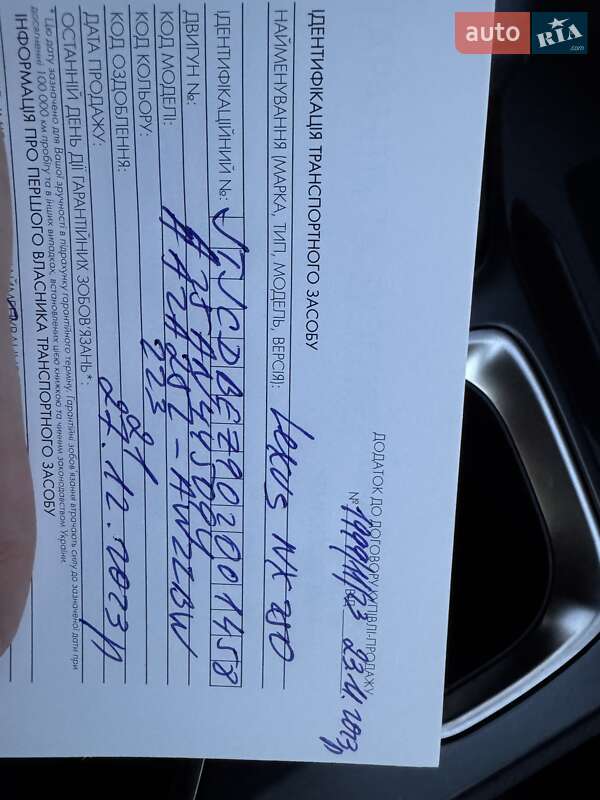 auto RIA.com
ДОДАТОК ДО ДОГОВОРУ КУПІВЛІ-ПРОДАЖУ
№
23.11.2023р
ІДЕНТИФІКАЦІЯ ТРАНСПОРТНОГО ЗАСОБУ
НАЙМЕНУВАННЯ (МАРКА, ТИП, МОДЕЛЬ, ВЕРСІЯ): Lexus NX 250
ІДЕНТИФІКАЦІЙНИЙ №:
ДВИГУН №:
КОД МОДЕЛІ:
КОД КОЛЬОРУ: 223
КОД ОЗДОБЛЕННЯ: 21
ДАТА ПРОДАЖУ: 27.12.2023р
ОСТАННІЙ ДЕНЬ ДІЇ ГАРАНТІЙНИХ ЗОБОВ'ЯЗАНЬ*:
* Цю дату зазначено для Вашої зручності в підрахунку гарантійного терміну. Гарантійні зобов'язання втрачають силу до зазначеної дати при
досягненні 100 000 км пробігу та в інших випадках, встановлених цією книжкою та чинним законодавством України.
ІНФОРМАЦІЯ ПРО ПЕРШОГО ВЛАСНИКА ТРАНСПОРТНОГО ЗАСОБУ